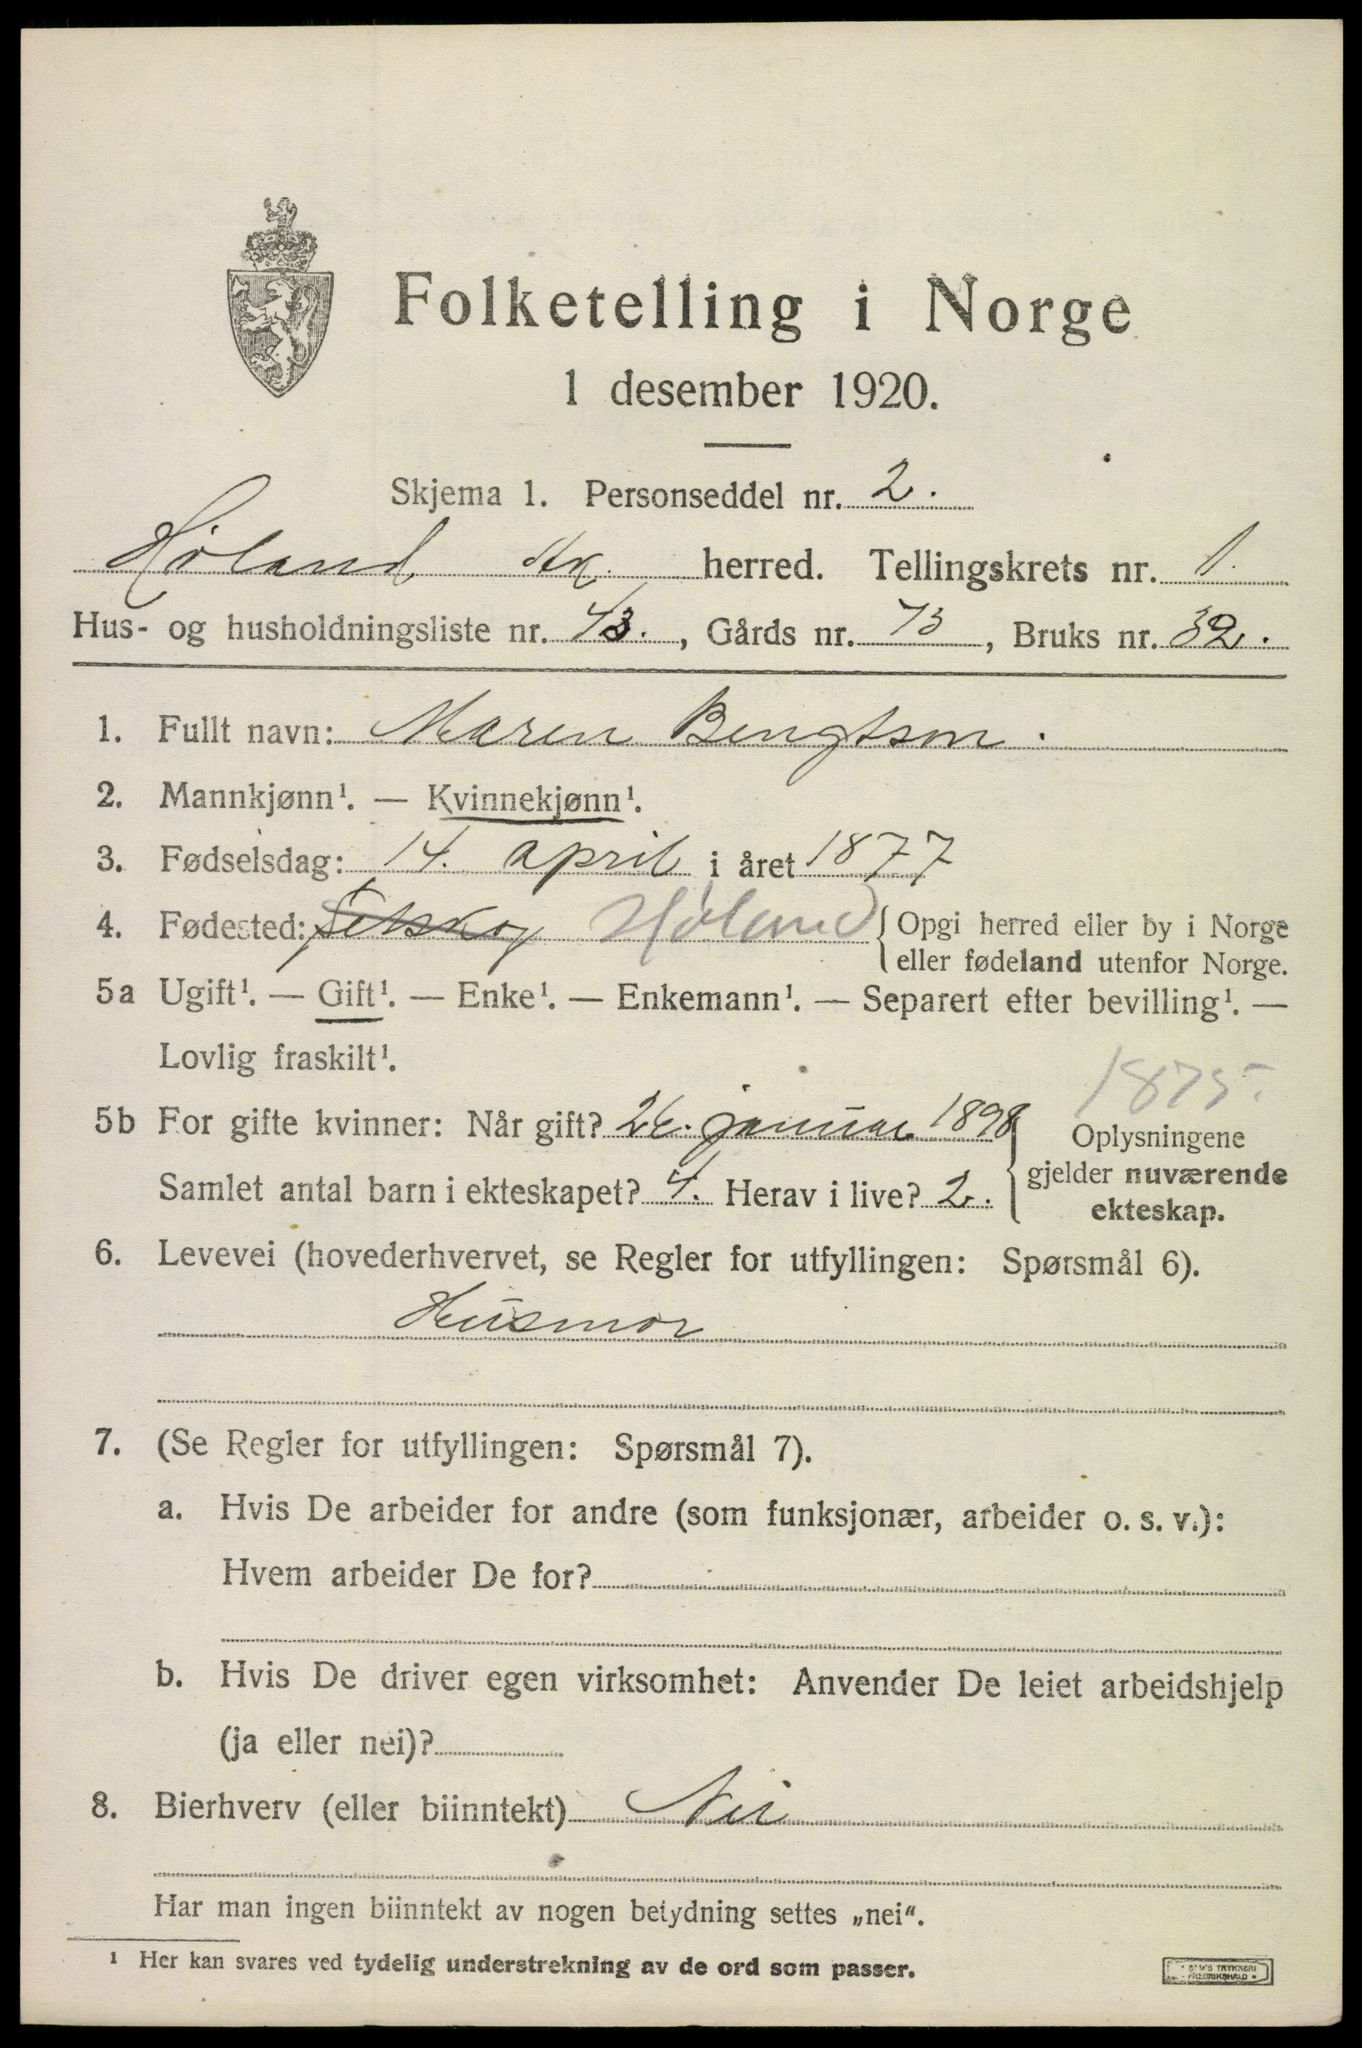 Folketelling i Norge
1 desember 1920.
Skjema 1. Personseddel nr. 2.
Høland Ak. herred. Tellingskrets nr. 1.
Hus- og husholdningsliste nr. 43., Gårds nr. 73, Bruks nr. 32.
1. Fullt navn: Maren Bengtson.
2. Mannkjønn¹. — Kvinnekjønn¹.
3. Fødselsdag: 14. april i året 1877
4. Fødested: Setskog Høland { Opgi herred eller by i Norge
eller fødeland utenfor Norge.
5a Ugift¹. — Gift¹. — Enke¹. — Enkemann¹. — Separert efter bevilling¹. —
Lovlig fraskilt¹.
1875.
5b For gifte kvinner: Når gift? januar 1898 { Oplysningene
gjelder nuværende
ekteskap.
Samlet antal barn i ekteskapet? 4. Herav i live? 2.
6. Levevei (hovederhvervet, se Regler for utfyllingen: Spørsmål 6).
Husmor
7. (Se Regler for utfyllingen: Spørsmål 7).
a. Hvis De arbeider for andre (som funksjonær, arbeider o. s. v.):
Hvem arbeider De for?
b. Hvis De driver egen virksomhet: Anvender De leiet arbeidshjelp
(ja eller nei)?
8. Bierhverv (eller biinntekt) Nei
Har man ingen biinntekt av nogen betydning settes „nei“.
¹ Her kan svares ved tydelig understrekning av de ord som passer.
TRYKKERI
FREDRIKSHALD